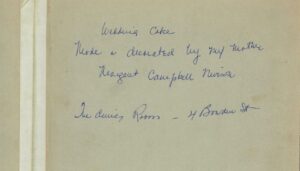 Wedding Cake
Made & decorated by my mother
Margaret Campbell
The dining Room - 4 Bowden St